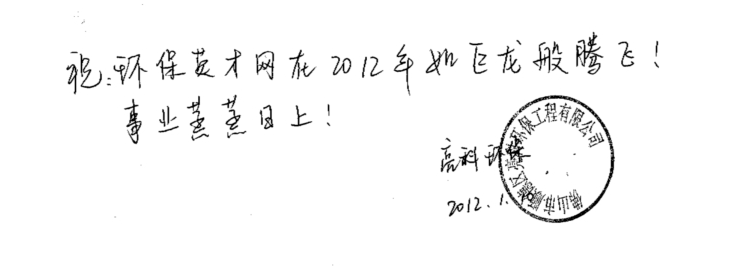 祝:环保英才网在2012年如巨龙般腾飞!
事业蒸蒸日上!
高科环保
2012.1.
佛山市顺德区高科环保工程有限公司